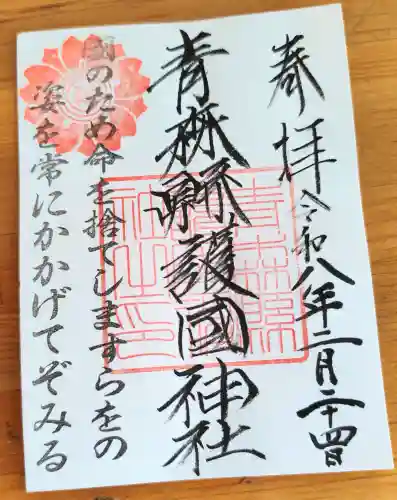 奉拝
令和八年二月二十四日
青森縣護國神社
國のため命を捨てしますらをの
姿を常にかかげてぞみる
青森縣護國神社之印